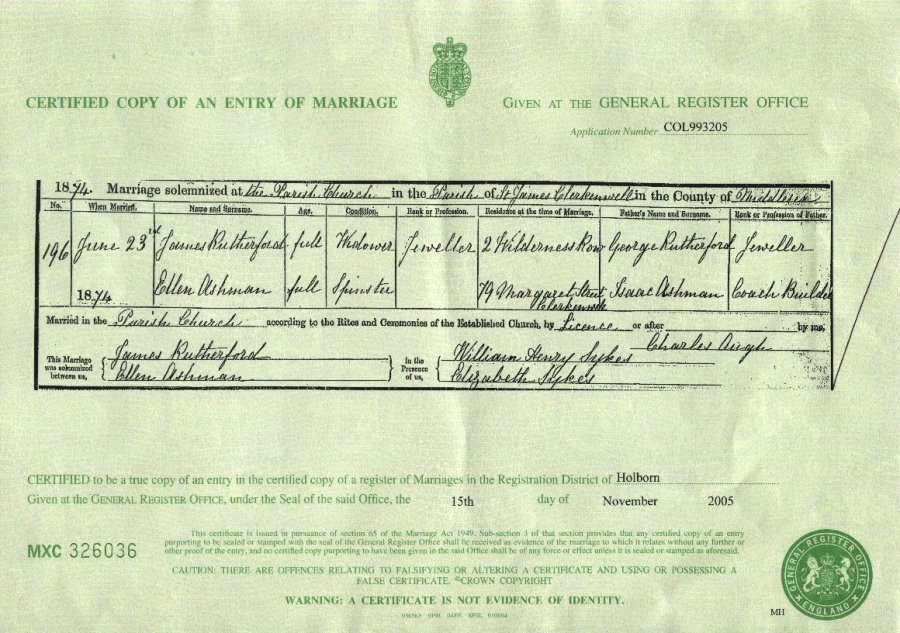 CERTIFIED COPY OF AN ENTRY OF MARRIAGE
GIVEN AT THE GENERAL REGISTER OFFICE
Application Number COL993205
1874. Marriage solemnized at the Parish Church in the Parish of St. James Clerkenwell in the County of Middlesex
No. When Married. Name and Surname. Age. Condition. Rank or Profession. Residence at the time of Marriage. Father's Name and Surname. Rank or Profession of Father.
196 June 23rd James Rutherford full Widower Jeweller 2 Wilderness Row George Rutherford Jeweller
1874 Ellen Ashman full Spinster 79 Margaret Street Clerkenwell Isaac Ashman Coach Builder
Married in the Parish Church according to the Rites and Ceremonies of the Established Church, by Licence or after by me,
Charles
This Marriage was solemnized between us, James Rutherford
Ellen Ashman
In the Presence of us, William Henry Sykes
Elizabeth Sykes
CERTIFIED to be a true copy of an entry in the certified copy of a register of Marriages in the Registration District of Holborn
Given at the GENERAL REGISTER OFFICE, under the Seal of the said Office, the 15th day of November 2005
MXC 326036
This certificate is issued in pursuance of section 65 of the Marriage Act 1949. Sub-section 3 of that section provides that any certified copy of an entry
purporting to be sealed or stamped with the seal of the General Register Office shall be received as evidence of the marriage to which it relates without any further or
other proof of the entry, and no certified copy purporting to have been given in the said Office shall be of any force or effect unless it is sealed or stamped as aforesaid.
CAUTION: THERE ARE OFFENCES RELATING TO FALSIFYING OR ALTERING A CERTIFICATE AND USING OR POSSESSING A
FALSE CERTIFICATE. ©CROWN COPYRIGHT
WARNING: A CERTIFICATE IS NOT EVIDENCE OF IDENTITY.
GENERAL REGISTER OFFICE
ENGLAND
MH